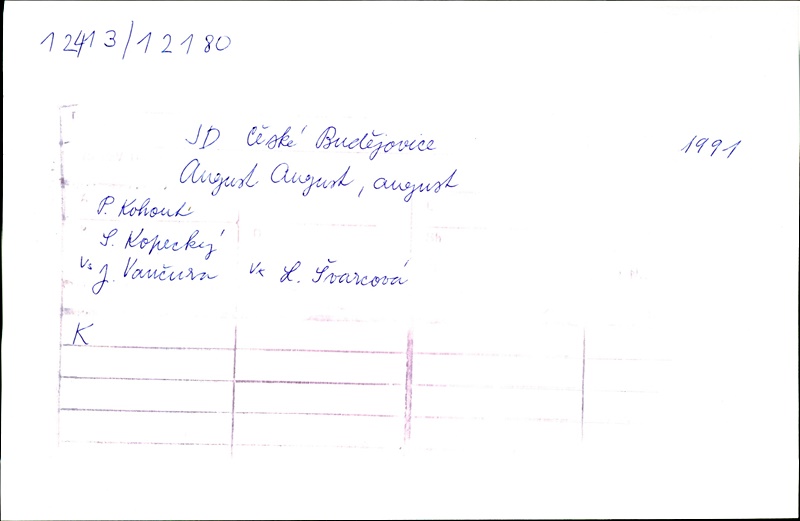 12413/12180
JD České Budějovice 1991
August August, august
P. Kohout
S. Kopecký
Vs J. Vančura Vk L. Švarcová
K